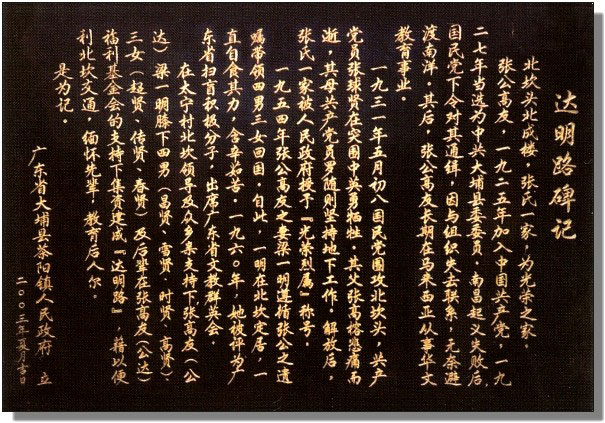 达明路碑记
北坎头北成楼，张氏一家，为光荣之家。
张公高友，一九二五年加入中国共产党，一九
二七年当选为中共大埔县委委员。南昌起义失败后，
国民党下令对其通缉，因与组织失去联系，无奈避
渡南洋，其后，张公高友长期在马来西亚从事华文
教育事业。
一九三一年五月初八国民党围攻北坎头，共产
党员张球贤在突围中英勇牺牲，其父张高榕悲痛而
逝，其母共产党员罗随则坚持地下工作。解放后，
张氏一家被人民政府授予『光荣烈属』称号。
一九五四年张公高友之妻梁一明遵循张公之遗
嘱带领四男三女回国，自此，一明在北坎定居，一
直自食其力，含辛如苦。一九六〇年，她被评为广
东省扫盲积极分子，出席广东省文教群英会。
在太宁村北坎领导及众乡亲支持下，张高友（公
达）梁一明膝下四男（昌贤、雪贤、时贤、高贤）、
三女（超贤、倩贤、春贤）及后辈在张高友（公达）
福利基金会的支持下集资建成『达明路』，藉以便
利北坎交通，缅怀先辈，教育后人尔。
是为记。
广东省大埔县茶阳镇人民政府 立
二〇〇三年夏月吉日